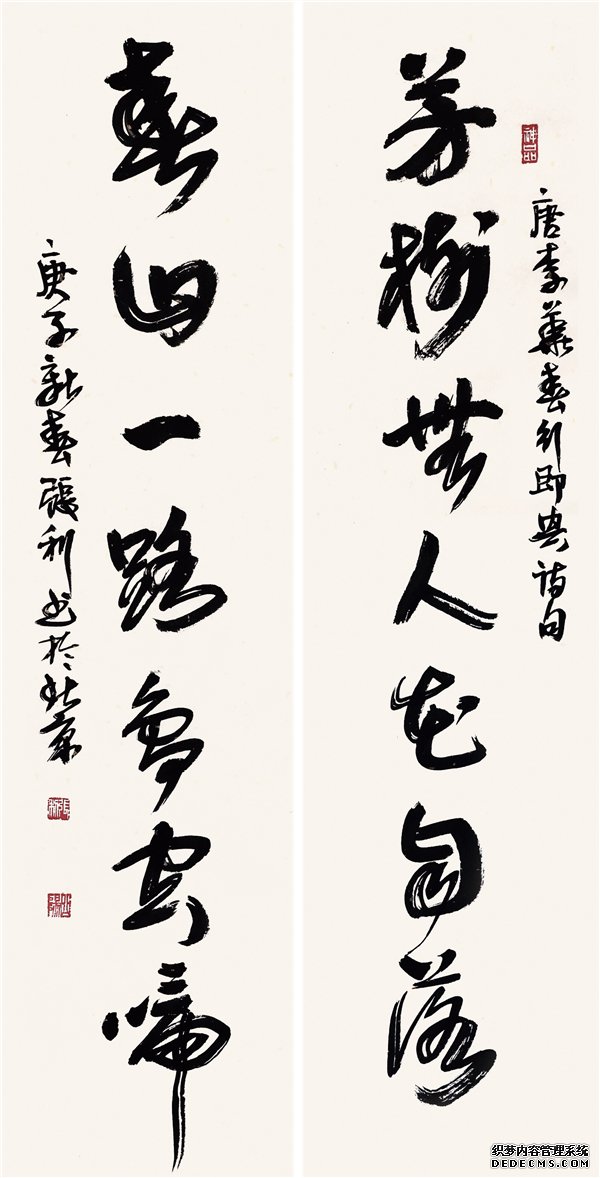 唐李華春行即興詩句
芳樹無人花自落
春山一路鳥空啼
庚子新春張利書於北京
织梦内容管理系统
DEDECMS.COM